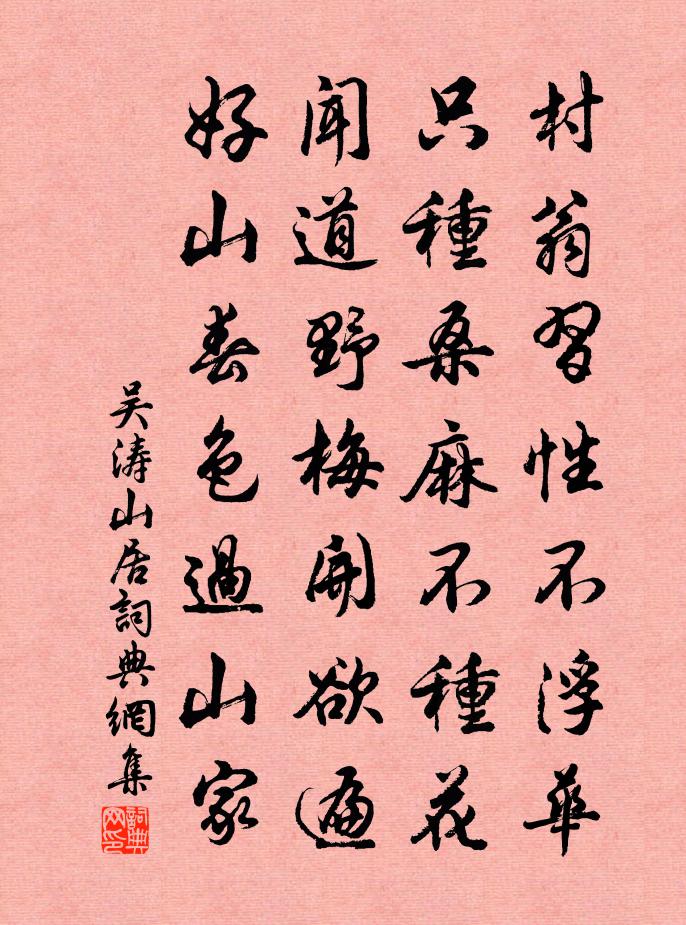 村翁習性不浮華
只種桑麻不種花
聞道野梅開欲遍
好山春色過山家
吴涛山居詞典網集
詞典网印